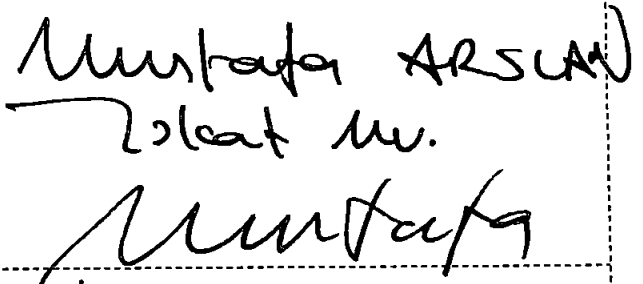 Mustafa ARSLAN
Tokat Mv.
Mustafa